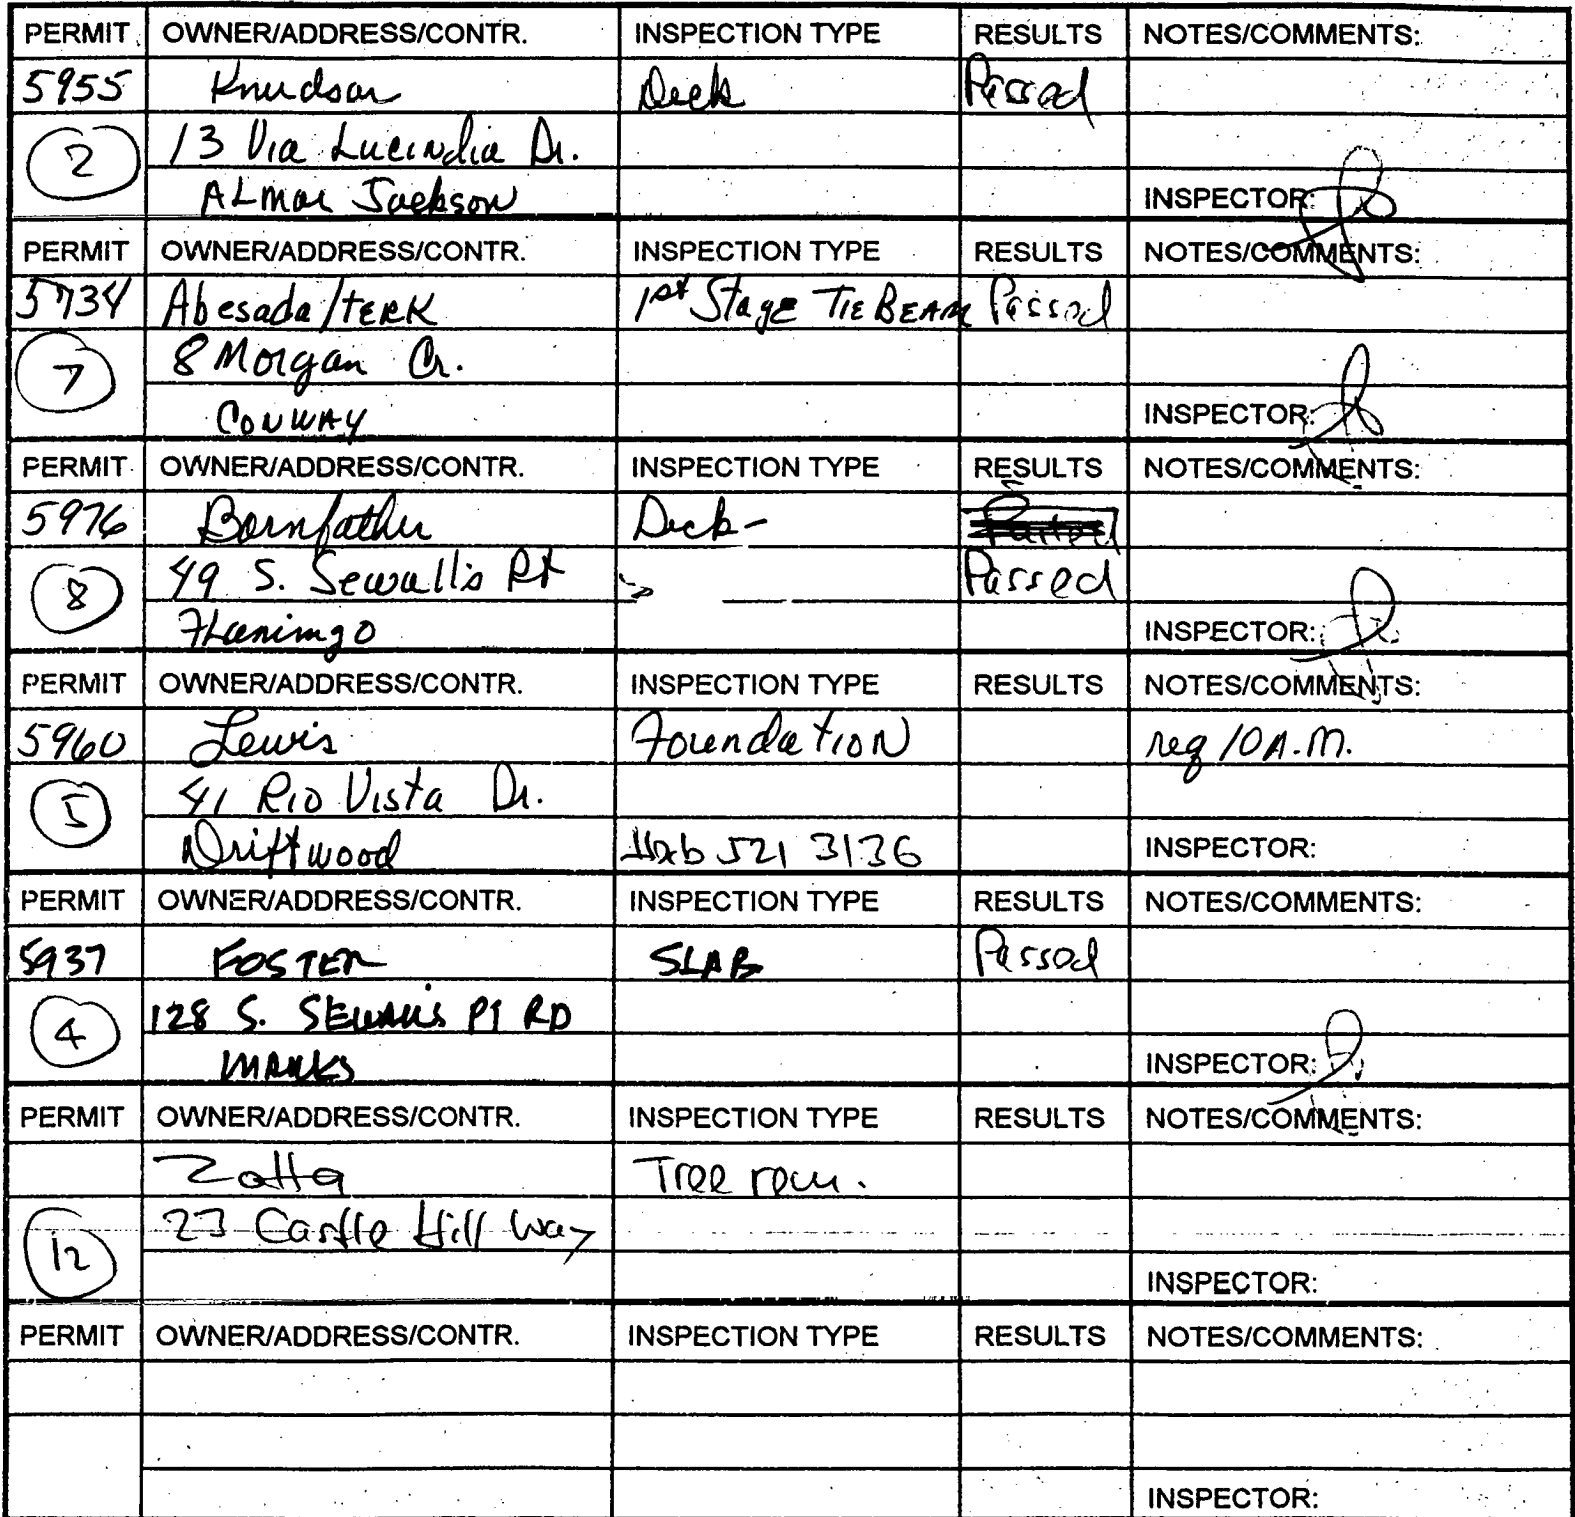 PERMIT OWNER/ADDRESS/CONTR. INSPECTION TYPE RESULTS NOTES/COMMENTS:
5955 Knudson Deck Passed
2 13 Via Lucindia Dr.
ALMAR Jackson INSPECTOR:
PERMIT OWNER/ADDRESS/CONTR. INSPECTION TYPE RESULTS NOTES/COMMENTS:
5734 Abesada/TERK 1st Stage TIE BEAM Passed
7 8 Morgan Cr.
CONWAY INSPECTOR:
PERMIT OWNER/ADDRESS/CONTR. INSPECTION TYPE RESULTS NOTES/COMMENTS:
5976 Bornfather Deck-
8 49 S. Sewall's Pt Passed
Flanimgo INSPECTOR:
PERMIT OWNER/ADDRESS/CONTR. INSPECTION TYPE RESULTS NOTES/COMMENTS:
5960 Lewis Foundation req 10 A.M.
5 41 Rio Vista Dr.
Driftwood 521 3136 INSPECTOR:
PERMIT OWNER/ADDRESS/CONTR. INSPECTION TYPE RESULTS NOTES/COMMENTS:
5937 FOSTER SLAB Passed
4 128 S. SEWALLS PT RD
MANKS INSPECTOR:
PERMIT OWNER/ADDRESS/CONTR. INSPECTION TYPE RESULTS NOTES/COMMENTS:
Zotta Tree rem.
12 23 Castle Hill Way
INSPECTOR:
PERMIT OWNER/ADDRESS/CONTR. INSPECTION TYPE RESULTS NOTES/COMMENTS:
INSPECTOR: